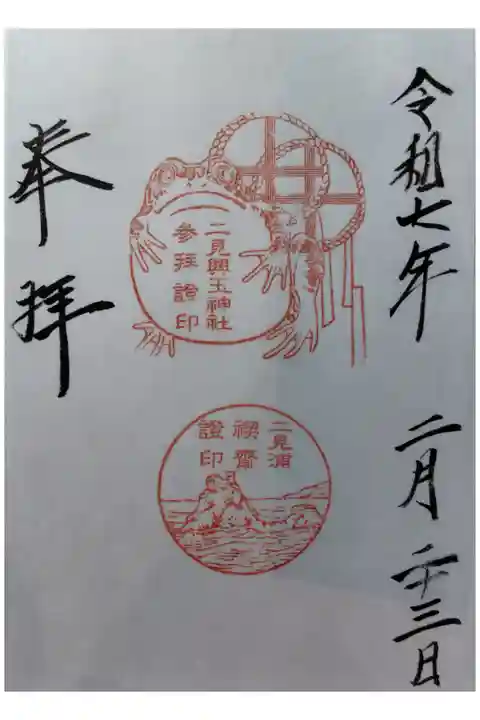 令和七年 二月二十三日
二見興玉神社
參拜證印
二見浦
禊齋
證印
奉拝